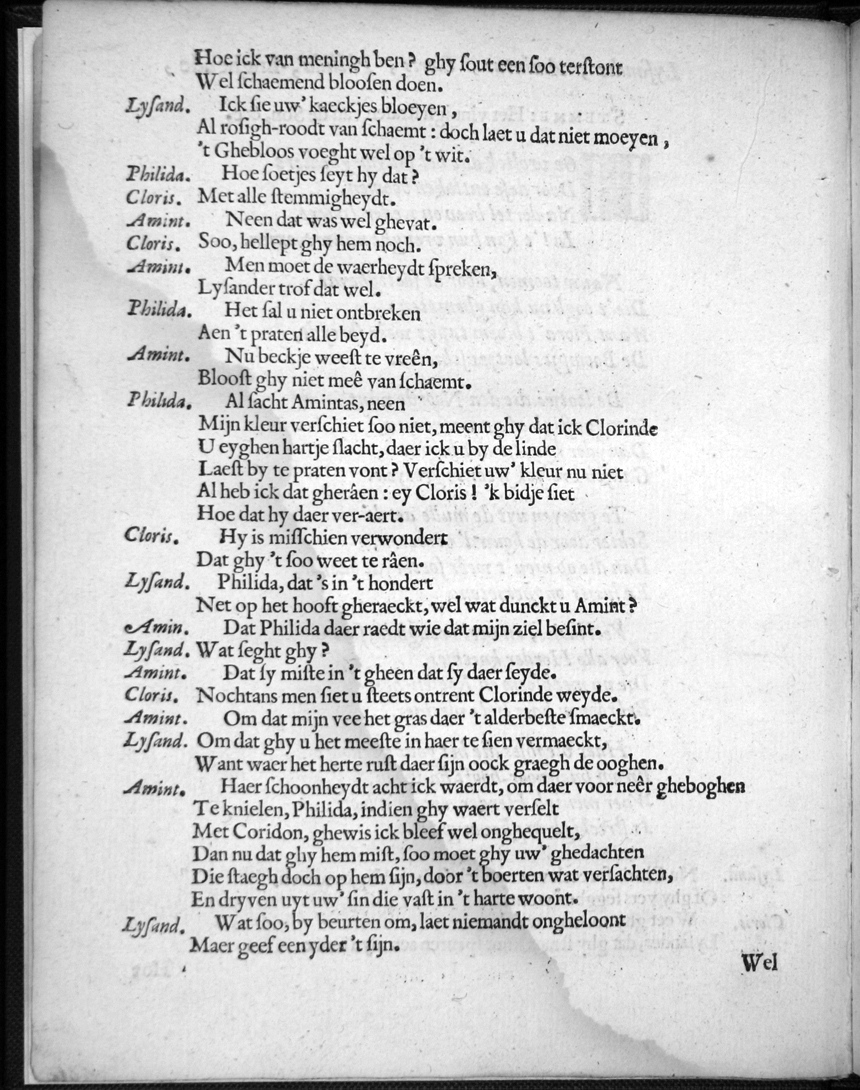 Hoe ick van meningh ben? ghy ſout een ſoo terſtont
Wel ſchaemend blooſen doen.
Lyſand. Ick ſie uw' kaeckjes bloeyen,
Al roſigh-roodt van ſchaemt: doch laet u dat niet moeyen,
't Ghebloos voeght wel op 't wit.
Philida. Hoe ſoetjes ſeyt hy dat?
Cloris. Met alle ſtemmigheydt.
Amint. Neen dat was wel ghevat.
Cloris. Soo, hellept ghy hem noch.
Amint. Men moet de waerheydt ſpreken,
Lyſander trof dat wel.
Philida. Het ſal u niet ontbreken
Aen 't praten alle beyd.
Amint. Nu beckje weeſt te vreên,
Blooſt ghy niet meê van ſchaemt.
Philida. Al ſacht Amintas, neen
Mijn kleur verſchiet ſoo niet, meent ghy dat ick Clorinde
U eyghen hartje ſlacht, daer ick u by de linde
Laeſt by te praten vont? Verſchiet uw' kleur nu niet
Al heb ick dat gherâen: ey Cloris! 'k bidje ſiet
Hoe dat hy daer ver-aert.
Cloris. Hy is miſſchien verwondert
Dat ghy 't ſoo weet te râen.
Lyſand. Philida, dat 's in 't hondert
Net op het hooft gheraeckt, wel wat dunckt u Amint?
Amin. Dat Philida daer raedt wie dat mijn ziel beſint.
Lyſand. Wat ſeght ghy?
Amint. Dat ſy miſte in 't gheen dat ſy daer ſeyde.
Cloris. Nochtans men ſiet u ſteets ontrent Clorinde weyde.
Amint. Om dat mijn vee het gras daer 't alderbeſte ſmaeckt.
Lyſand. Om dat ghy u het meeſte in haer te ſien vermaeckt,
Want waer het herte ruſt daer ſijn oock graegh de ooghen.
Amint. Haer ſchoonheydt acht ick waerdt, om daer voor neêr gheboghen
Te knielen, Philida, indien ghy waert verſelt
Met Coridon, ghewis ick bleef wel onghequelt,
Dan nu dat ghy hem miſt, ſoo moet ghy uw' ghedachten
Die ſtaegh doch op hem ſijn, door 't boerten wat verſachten,
En dryven uyt uw' ſin die vaſt in 't harte woont.
Lyſand. Wat ſoo, by beurten om, laet niemandt ongheloont
Maer geef een yder 't ſijn.
Wel